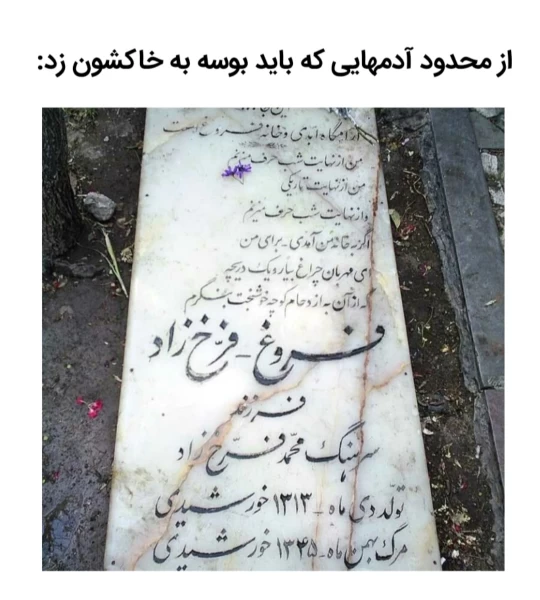 از محدود آدمهایی که باید بوسه به خاکشون زد:
آرامگاه ابدی و خانه فروغ است
من از نهایت شب حرف میزنم
من از نهایت تاریکی
و از نهایت شب حرف میزنم
اگر به خانه من آمدی - برای من
ای مهربان چراغ بیار و یک دریچه
که از آن به ازدحام کوچه خوشبخت بنگرم
فروغ - فرّخ زاد
فرزند
سرهنگ محمّد فرّخ زاد
تولّد دی ماه - ۱۳۱۳ خورشیدی
مرگ بهمن ماه - ۱۳۴۵ خورشیدی